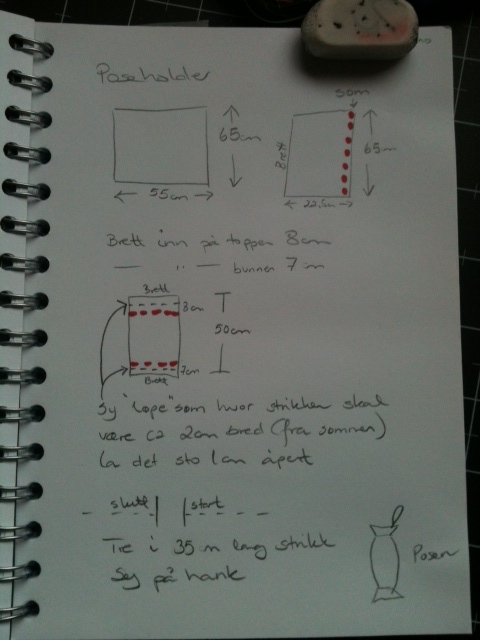 Poseholder
65cm
55cm
Søm
Brett
65cm
22,5cm
Brett inn på toppen 8cm
— " — bunnen 7cm
Brett
8cm
50cm
7cm
Brett
Sy "løpe" som hvor strikken skal
være ca 2cm bred (fra sømmen)
la det stå 1cm åpent
slutt start
Tre i 35cm lang strikk
Sy på hank
Posen